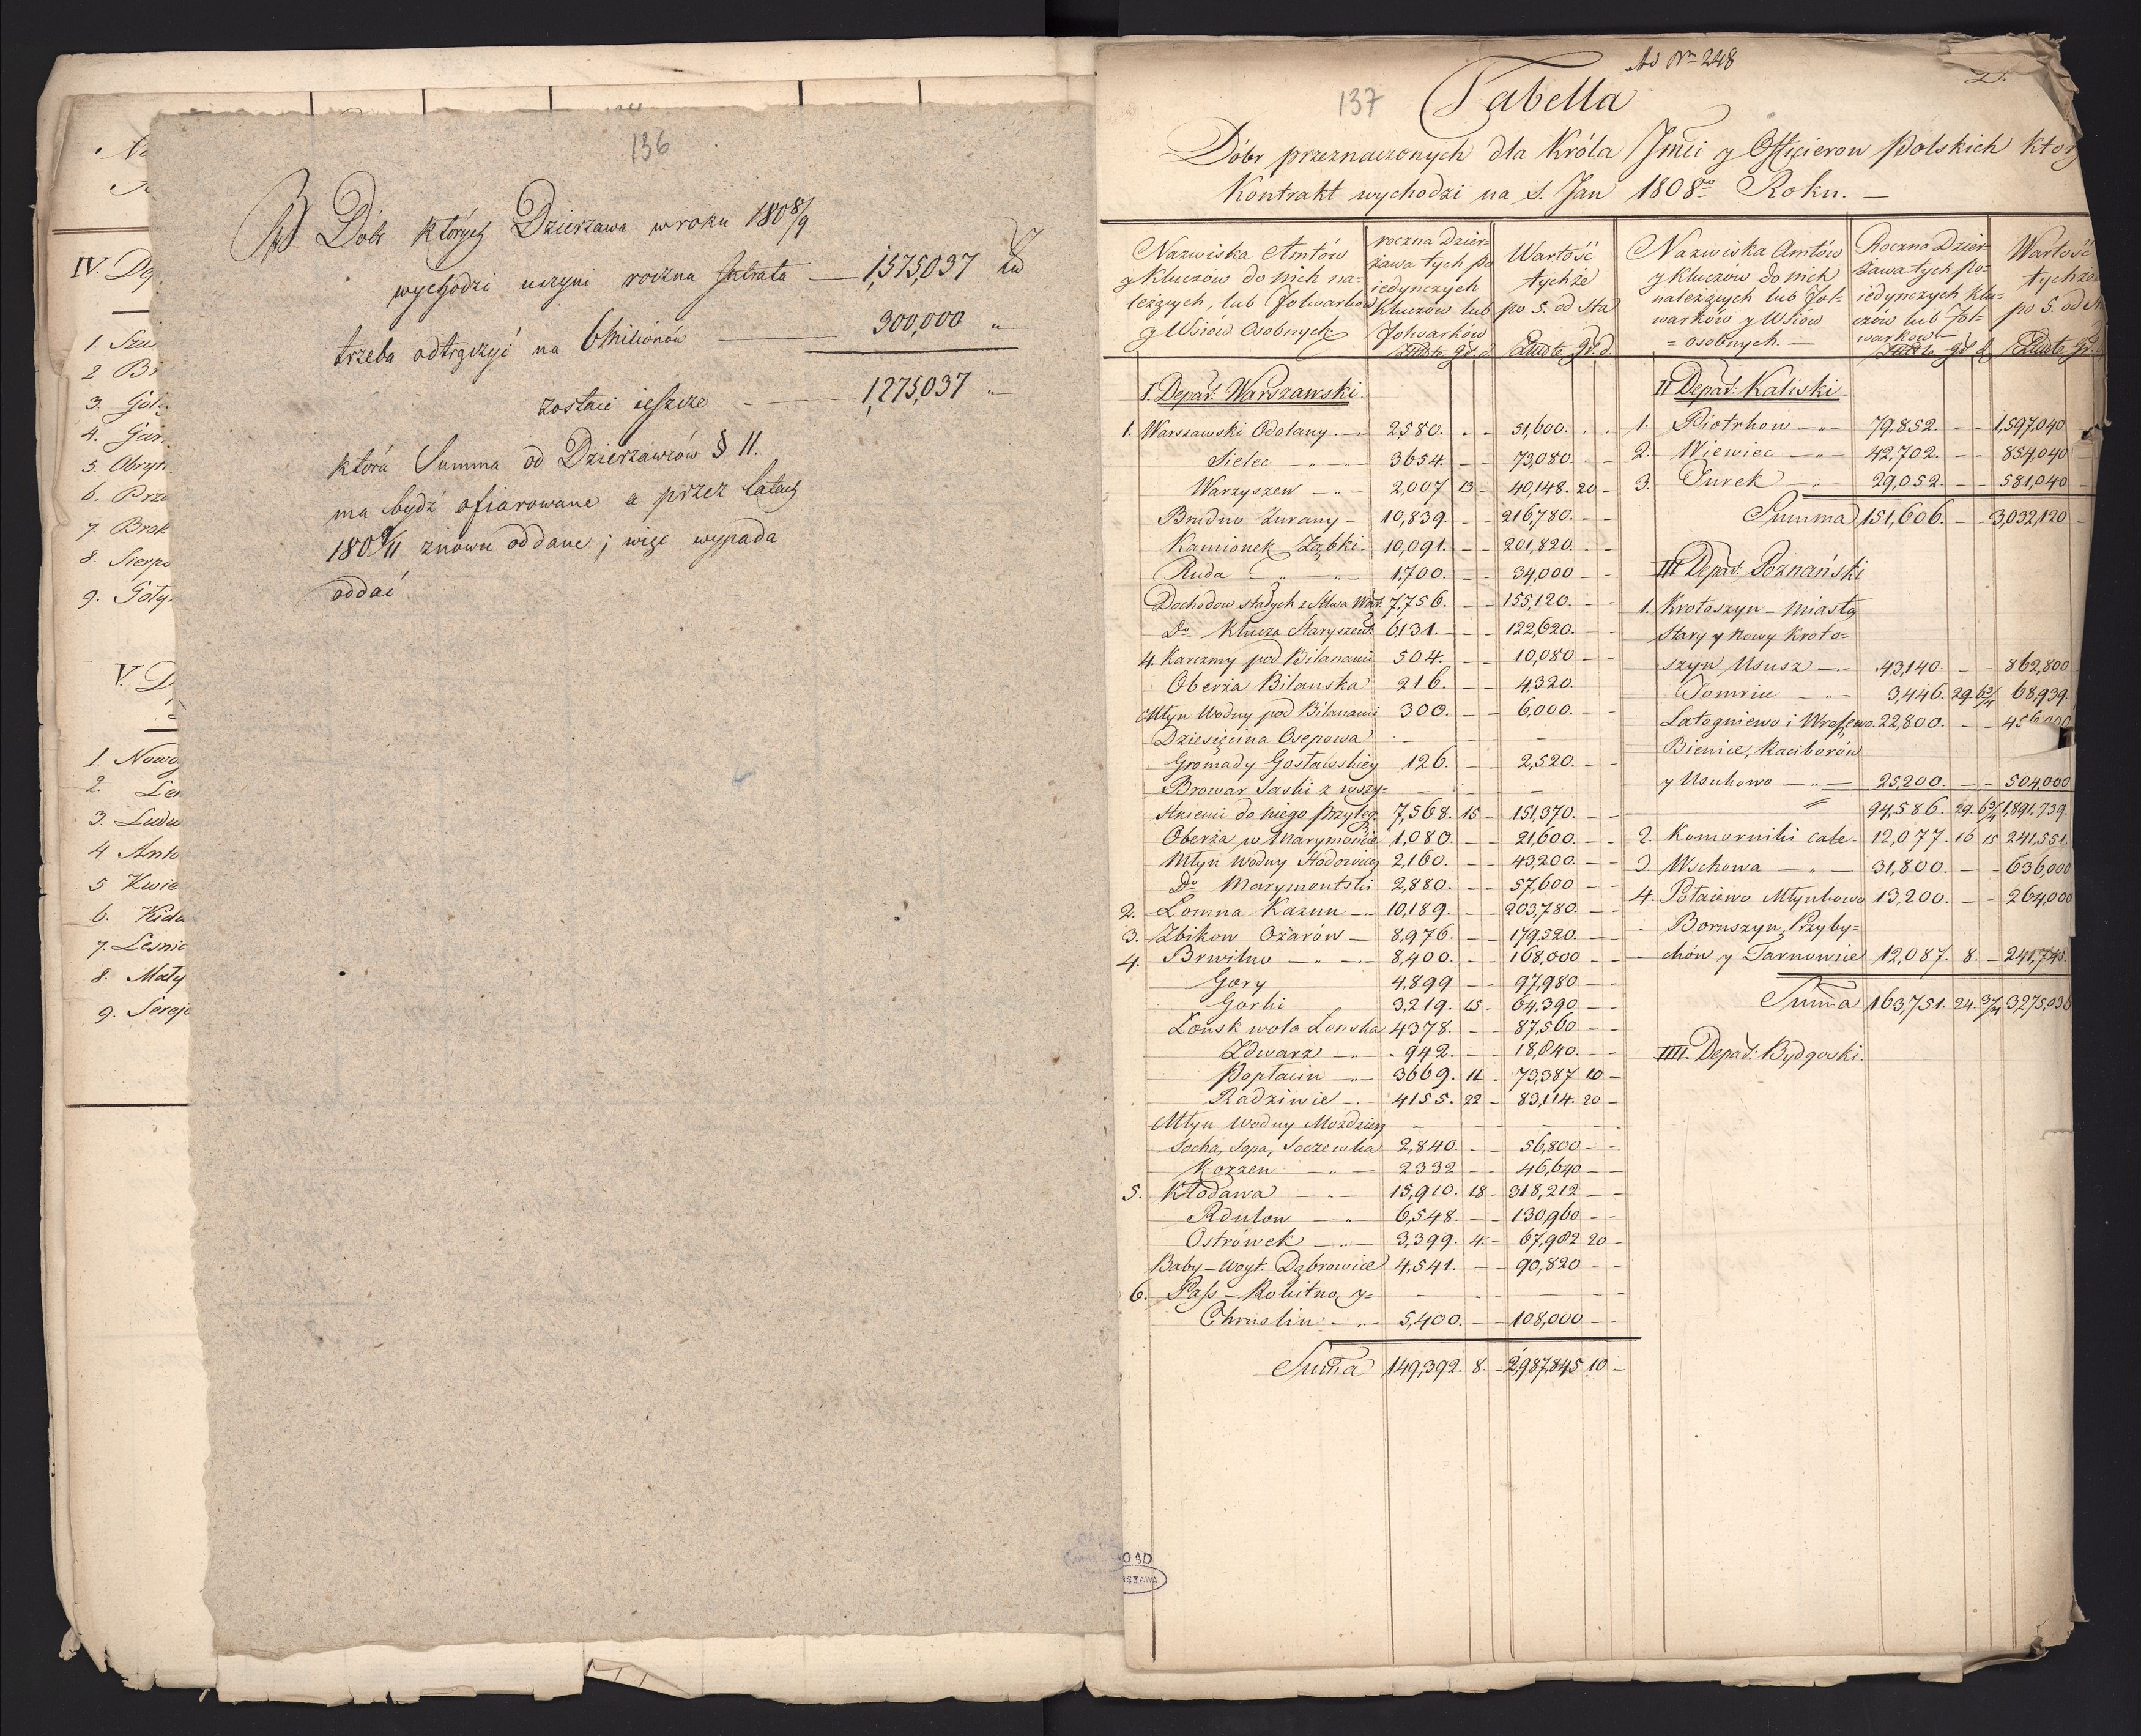 136
NB Dóbr których Dzierzawa w roku 1808/9
wychodzi uczyni roczna Intrata — 1,575,037 Zł
trzeba odtrącżyć na 6 Milionów — 300,000 "
zostaie ieszcze — 1,275,037 "
która Summa od Dzierzawców § 11.
ma bydź ofiarowane a przez latach
180 9/11 znowu oddane; więc wypada
oddać.
IV. Do
1. Szu
2 Bi
3. Goł
4. Gar
5. Obryt
6. Prze
7. Brok
8. Sierpc
9. Goły
V. D
1. Nowo
2. Len
3. Ludw
4 Anto
5 Kwie
6. Kida
7. Lesnic
8. Mały
9. Sereje
Ad Nr 248
137
Tabella
Dóbr przeznaczonych dla Króla Jmci y Officierow Polskich ktor
Kontrakt wychodzi na S. Jan 1808o Roku. —
Nazwiska Amtów y Kluczów do nich należących, lub Folwarków y Wsiów Osobnych
roczna Dzierżawa tych poiedynczych Kluczów lub Folwarków
Wartość tychże po 5. od Sta
Nazwiska Amtów y Kluczów do nich należących lub Folwarków y Wsiów osobnych. —
Roczna Dzierżawa tych poiedynczych Kluczów lub Folwarków
Wartość tychże po 5. od St
I. Depart: Warszawski.
1. Warszawski Odolany. — 2580. — — 51,600. . .
Sielec — " — 3654. — — 73,080. . —
Warzyszew — " — 2,007 13 — 40,148. 20 —
Brudno Zurany — 10,839. — — 216,780. — —
Kamionek Ząbki — 10,091. — — 201,820. — —
Ruda — " — 1,700. — — 34,000 — —
Dochodow stałych z Mwa Wart. 7,756. — — 155,120. — —
Do Klucza Staryszew: 6131. — — 122,620. — —
4. Karczmy pod Bilanami 504. — — 10,080 — —
Oberża Bilanska 216. — — 4,320.
Młyn Wodny pod Bilanami 300. — — 6,000. — —
Dziesięcina Osepowa — — —
Gromady Gosławskiey 126. — — 2,520. — —
Browar Saski z wszy= — — —
stkiemi do niego przyleg. 7,568. 15 — 151,370. — —
Oberża w Marymoncie 1,080. — — 21,600 — —
Młyn Wodny Słodowiec 2160. — — 43,200. — —
Do Marymontski 2,880. — — 57,600 — —
2. Łomna Kazun — 10,189. — — 203,780. — —
3. Zbikow Ożarów — 8,976. — — 179,520. — —
4. Brwilno — " — 8,400. — — 168,000 — —
Gory 4,899 — — 97,980 — —
Gorki 3,219. 15 — 64,390 — —
Łonsk wola Łonska 4378. — — 87,560 — —
Zdwarz — 942. — — 18,840. — —
Popłacin — 3669. 11 . 73,387 10 —
Radziwie — 4155. 22 — 83,114. 20 —
Młyn Wodny Mozdzierz — — —
Socha, Sopa, Soczewka 2,840. — — 56,800 — —
Kozzen — " — 2332 — — 46,640 — —
5. Kłodawa — " — 15,910. 18 — 318,212 — —
Rdutow — " — 6,548. — — 130,960 — —
Ostrówek — " — 3,399. 4. — 67,982 20 —
Baby — Woyt. Dąbrowice 4,541. — — 90,820 — —
6. Pass — Rokitno y= — — —
Chruslin — " — 5,400. — — 108,000 — —
Suma 149,392. 8. — 2,987,845 10 —
II Depart: Kaliski.
1. Piotrkow — " — 79,852. — — 1,597,040 —
2. Wiewiec — " — 42,702. — — 854,040 —
3. Turek — " — 29,052. — — 581,040 —
Summa 151,606. — — 3,032,120 —
III Depart: Poznański
1. Krotoszyn — Miasta
Stary y Nowy Kroto=
szyn Ususz — 43,140. — — 862,800
Tomnice — " — 3,446. 29. 68,939.
Latogniewo i Wrozewo. 22,800. — — 456,000
Bienice, Raciborów
y Usukowo — " — 25,200. — — 504,000
94,586. 29. 1,891,739.
2. Komorniki całe. 12,077. 16 15 241,551.
3. Wschowa — " — 31,800. — — 636,000
4. Połaiewo Młynkowo 13,200. — — 264,000
Boruszyn, Przyby=
chów y Tarnowiec 12,087. 8. — 241,745.
Suma 163,751. 24. 3,275,036
IIII. Depart: Bydgoski.